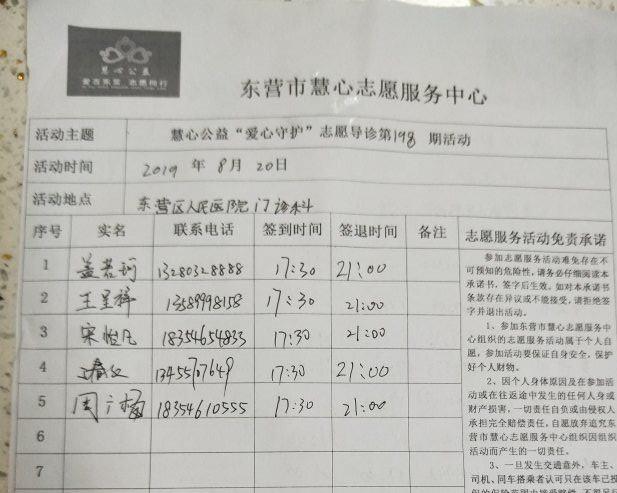 慧心公益
爱在东营 志愿同行
东营市慧心志愿服务中心
活动主题 慧心公益“爱心守护”志愿导诊第198期活动
活动时间 2019年8月20日
活动地点 东营区人民医院门诊科
序号 实名 联系电话 签到时间 签退时间 备注
1 盖若珂 13280328888 17:30 21:00
2 王呈祥 13589998158 17:30 21:00
3 宋恺凡 18354654833 17:30 21:00
4 13455707649 17:30 21:00
5 周广 18354610555 17:30 21:00
6
7
志愿服务活动免责承诺
参加志愿服务活动难免存在不
可预知的危险性,请务必仔细阅读本
承诺书,签字后生效。如对本承诺书
条款存在异议或不能接受,请拒绝签
字并退出活动。
1、参加东营市慧心志愿服务中
心组织的志愿服务活动属于个人自
愿,参加活动要保证自身安全,保护
好个人财物。
2、因个人身体原因及在参加活
动或在往返途中发生的任何人身或
财产损害,一切责任自负或由侵权人
承担完全赔偿责任,自愿放弃追究东
营市慧心志愿服务中心组织因组织
活动而产生的一切责任。
3、一旦发生交通意外,车主、
司机、同车搭乘者认可只在该车已投